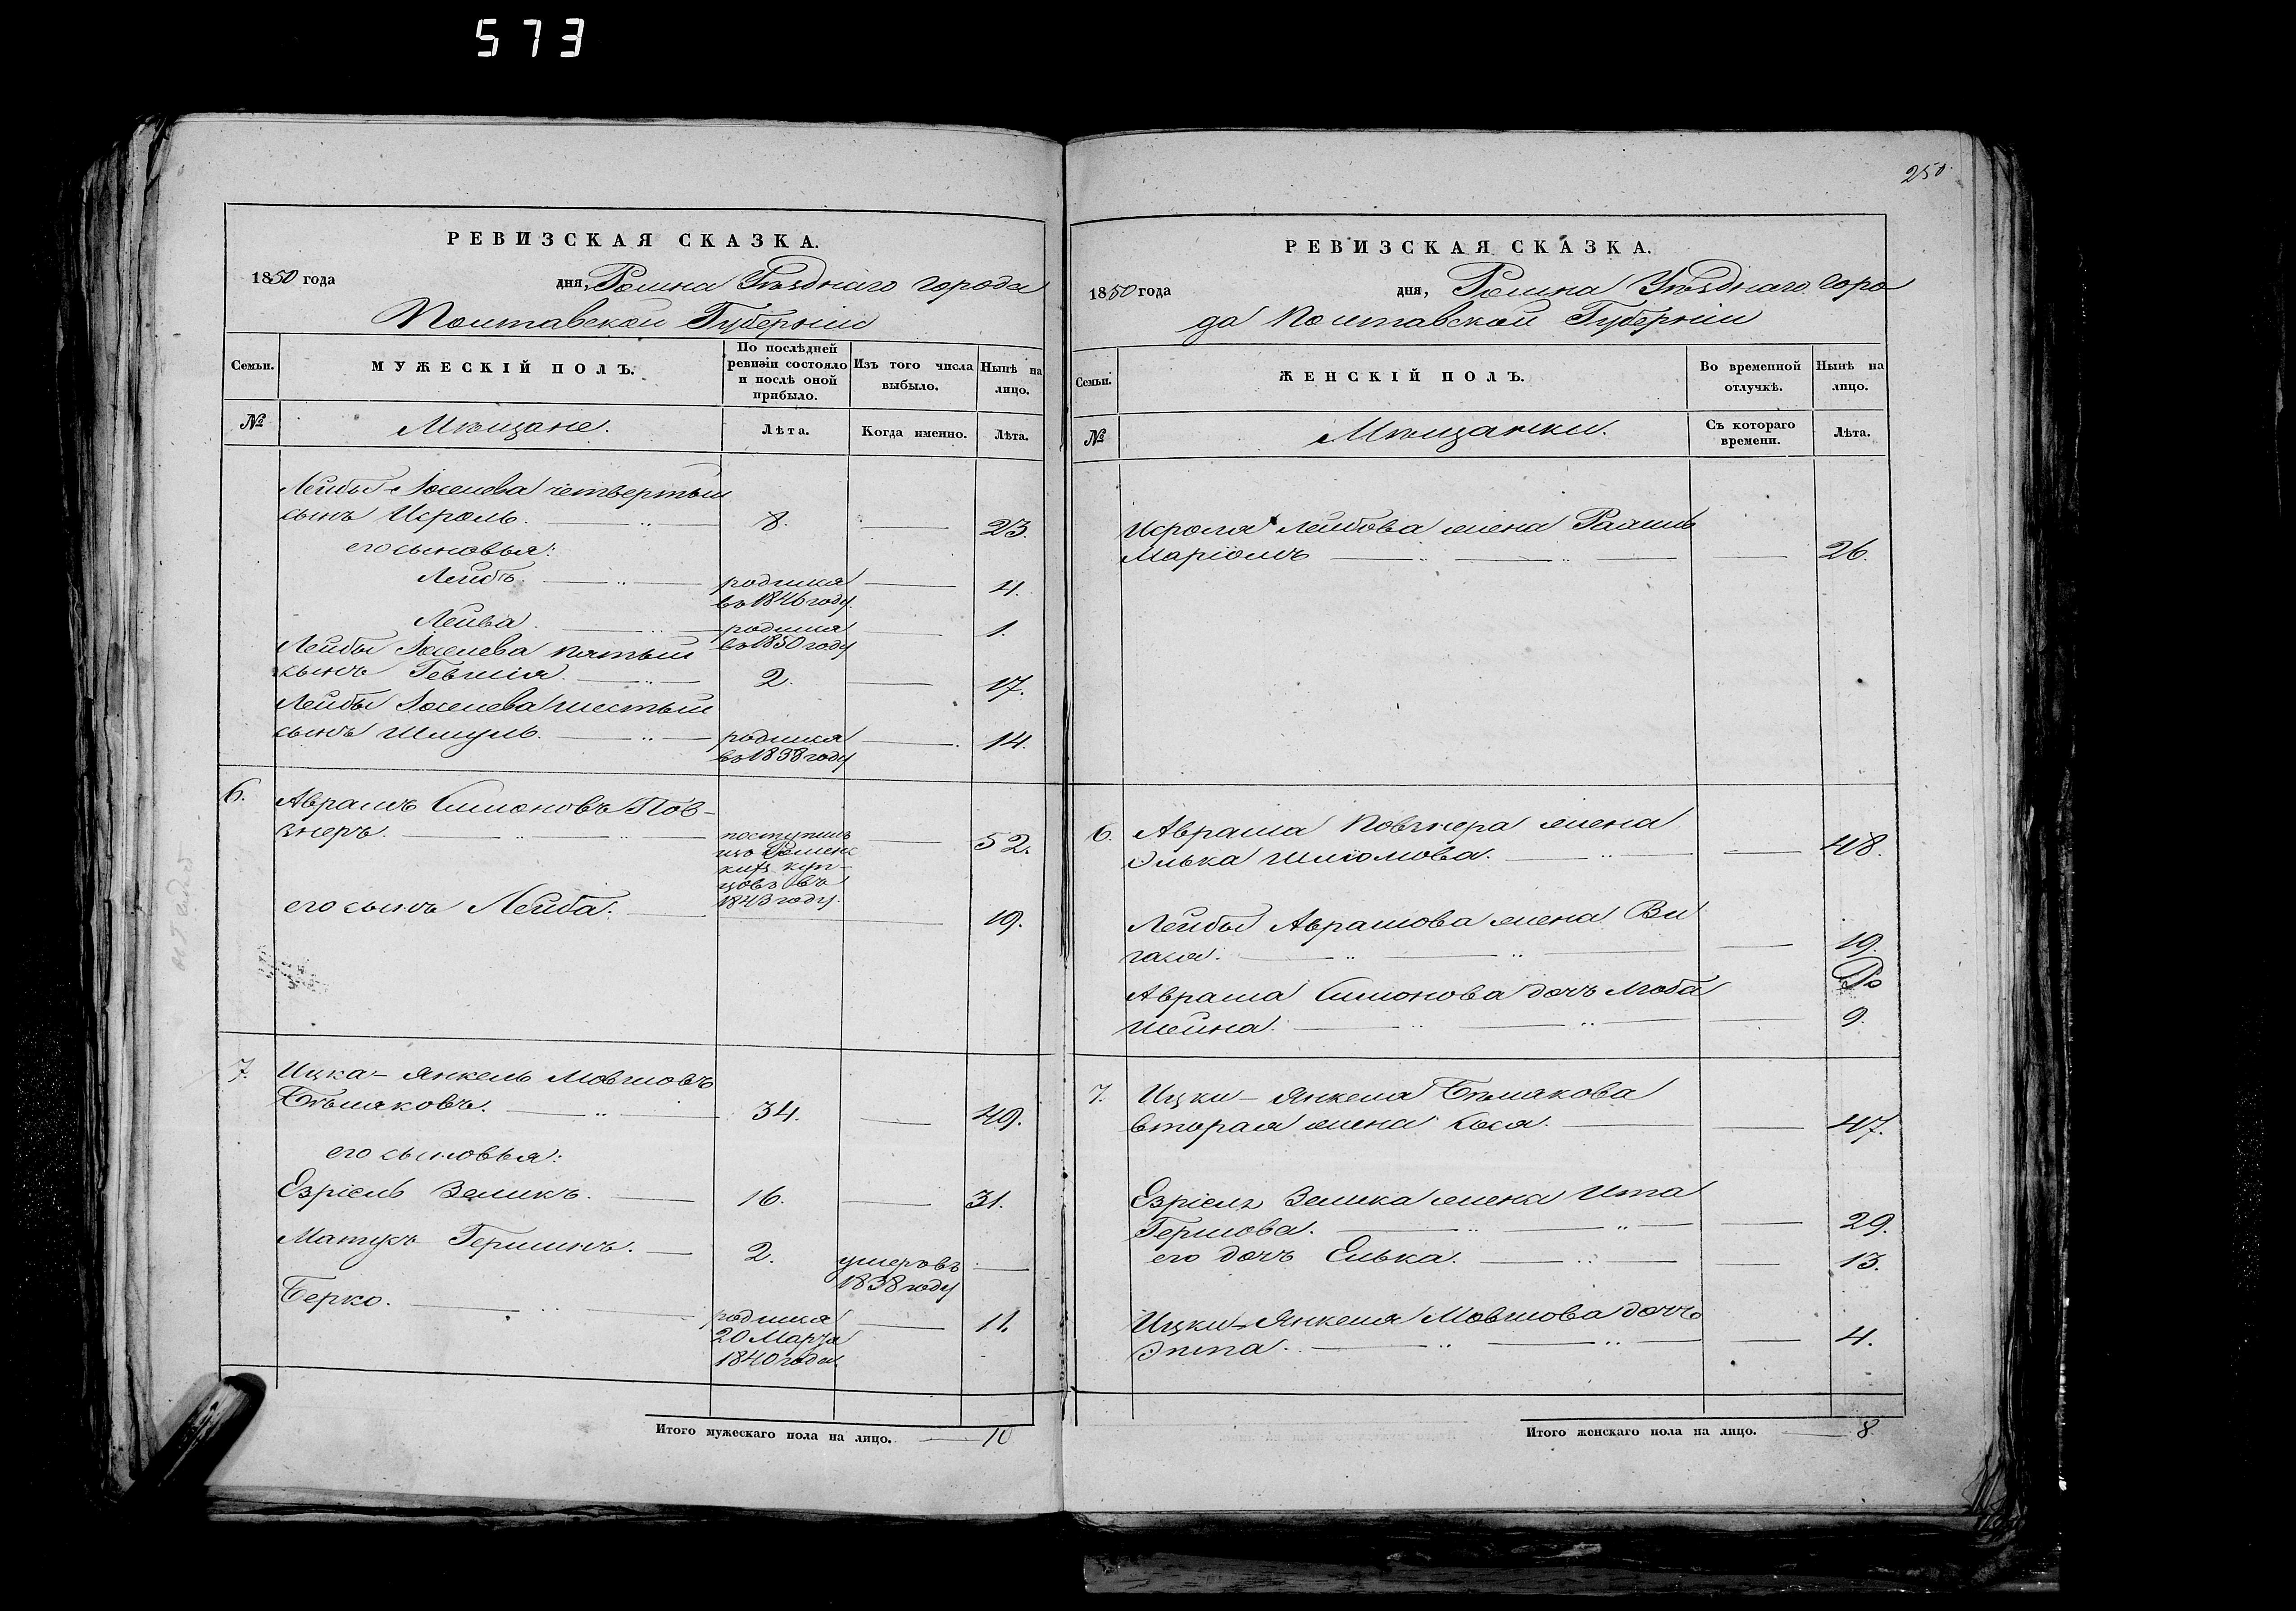 573
РЕВИЗСКАЯ СКАЗКА.
1850 года дня, Ромна Уѣзднаго города
Полтавской Губерніи
Семьи. МУЖЕСКІЙ ПОЛЪ. По послѣдней ревизіи состояло и послѣ оной прибыло. Изъ того числа выбыло. Нынѣ на лицо.
№ Мѣщане. Лѣта. Когда именно. Лѣта.
Лейбы Іоселева четвертый
сынъ Исроль. 8. 23.
его сыновья:
Лейбъ. родился въ 1846 году. 4.
Лейва. родился въ 1850 году 1.
Лейбы Іоселева пятый
сынъ Гевшія. 2. 17.
Лейбы Іоселева шестый
сынъ Шмуль. родился въ 1838 году 14.
6. Аврамъ Симоновъ Пов-
знеръ. поступилъ изъ Роменскихъ купцовъ въ 1843 году. 52.
его сынъ Лейба. 19.
7. Ицка-Янкель Мовшовъ
Бѣляковъ. 34. 49.
его сыновья:
Езріель Зеликъ. 16. 31.
Матусъ Гершинъ. 2. умеръ въ 1838 году
Берко. родился 20 Марта 1840 года. 11.
Итого мужескаго пола на лицо. 10
250.
РЕВИЗСКАЯ СКАЗКА.
1850 года дня, Ромна Уѣзднаго горо
да Полтавской Губерніи
Семьи. ЖЕНСКІЙ ПОЛЪ. Во временной отлучкѣ. Нынѣ на лицо.
№ Мѣщанки. Съ котораго времени. Лѣта.
Исроля Лейбова жена
Маріомъ 26.
6. Аврама Повзнера жена
Элька Шліомова. 48.
Лейбы Аврамова жена Ви
гася. 19.
Аврама Симонова дочь Люба
Шейна. 9.
7. Ицки-Янкеля Бѣлякова
вторая жена Сося. 47.
Езріелъ Зелика жена Ита
Гершова. 29.
его дочь Елька. 13.
Ицки-Янкеля Мовшова дочь
Этта. 4.
Итого женскаго пола на лицо. 8.